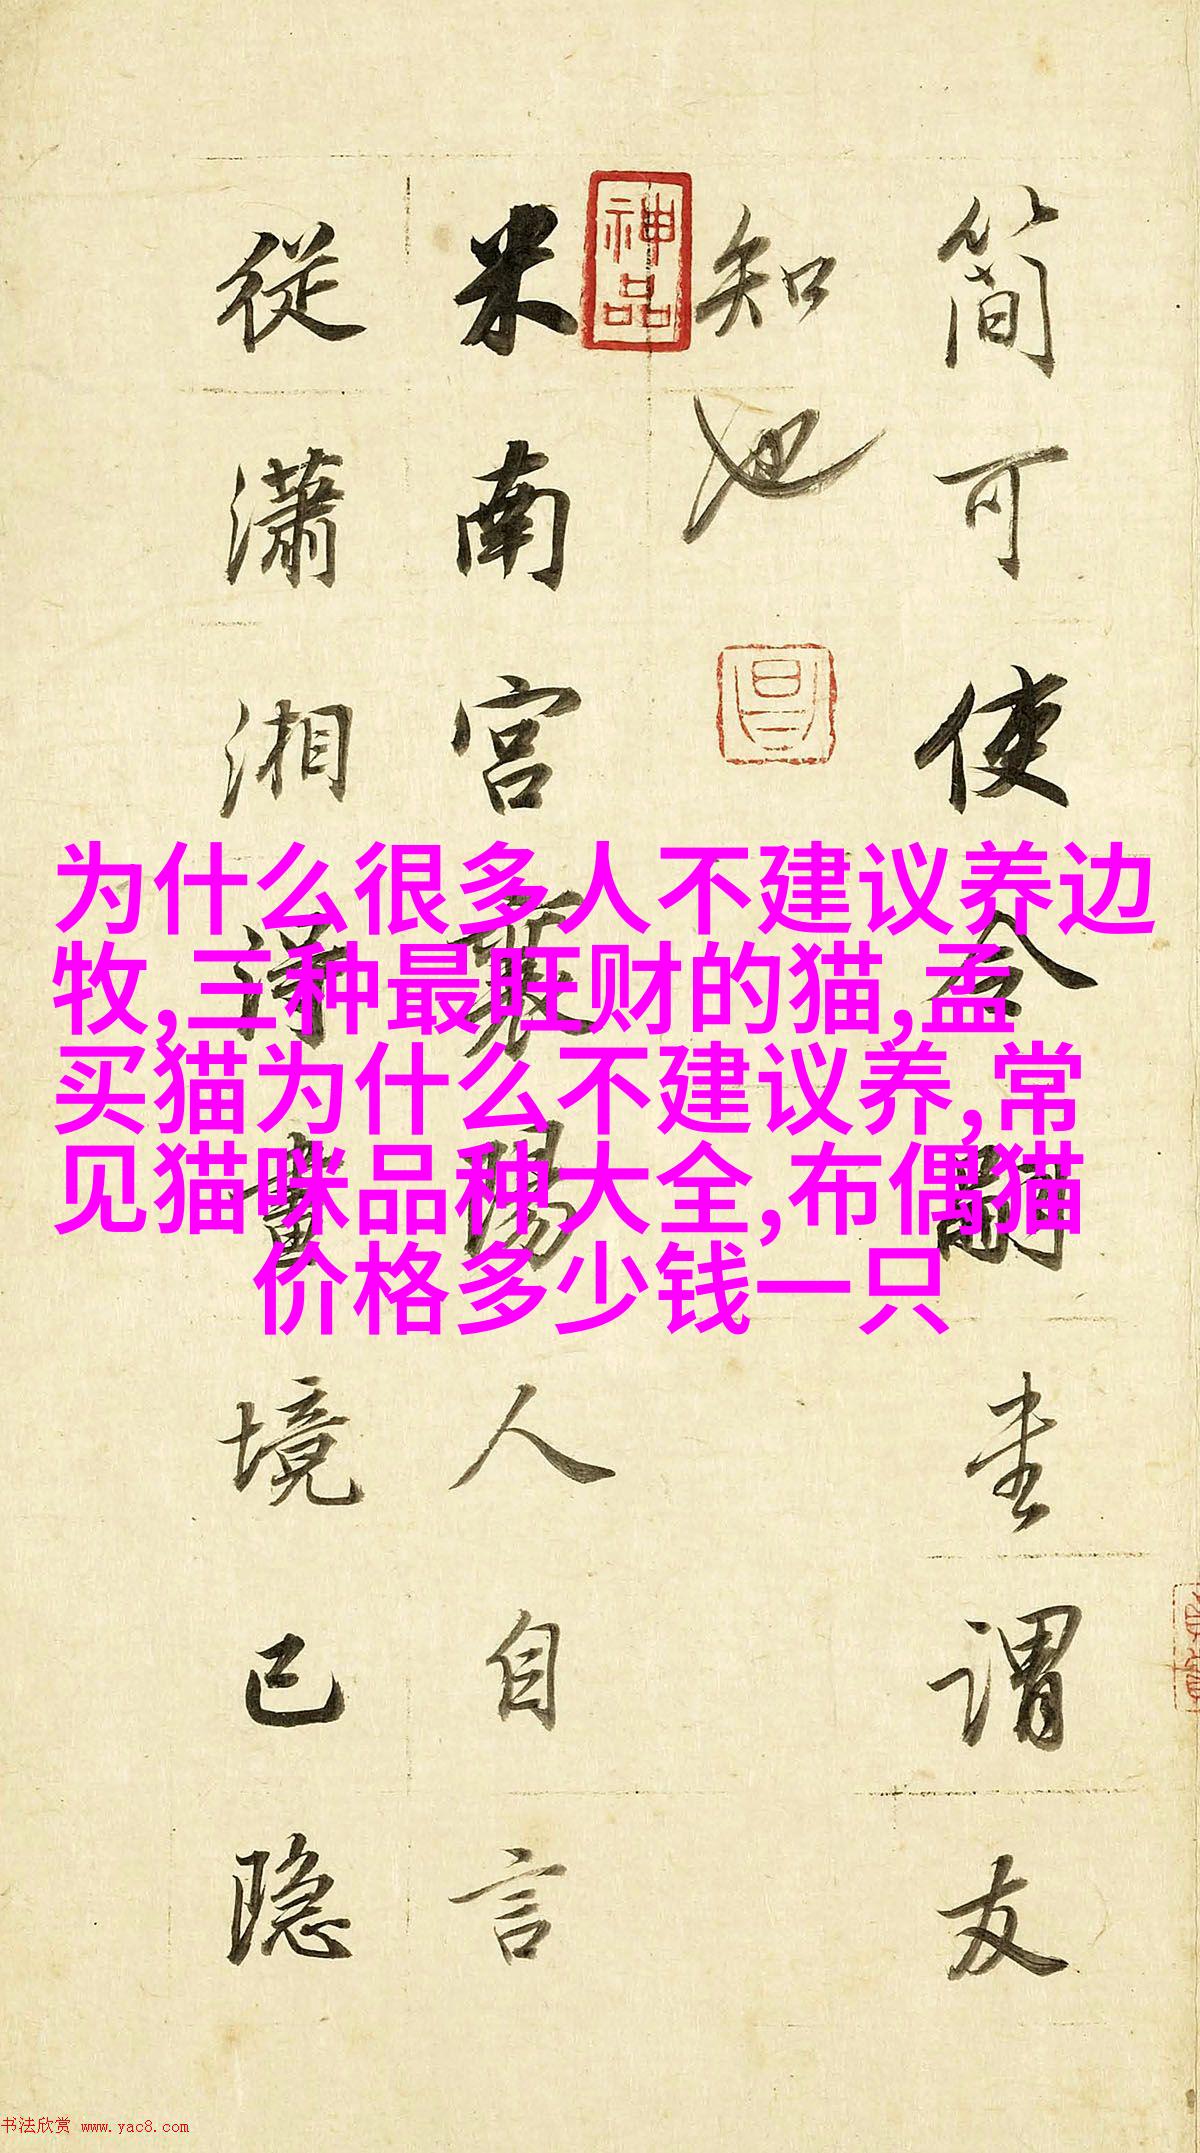 簡可使令嗣謂友
知也
神品
昌
米南宫襄陽人自言
從瀟湘得畫境已隐
为什么很多人不建议养边
牧,三种最旺财的猫,孟
买猫为什么不建议养,常
见猫咪品种大全,布偶猫
价格多少钱一只
书法欣赏 www.yac8.com